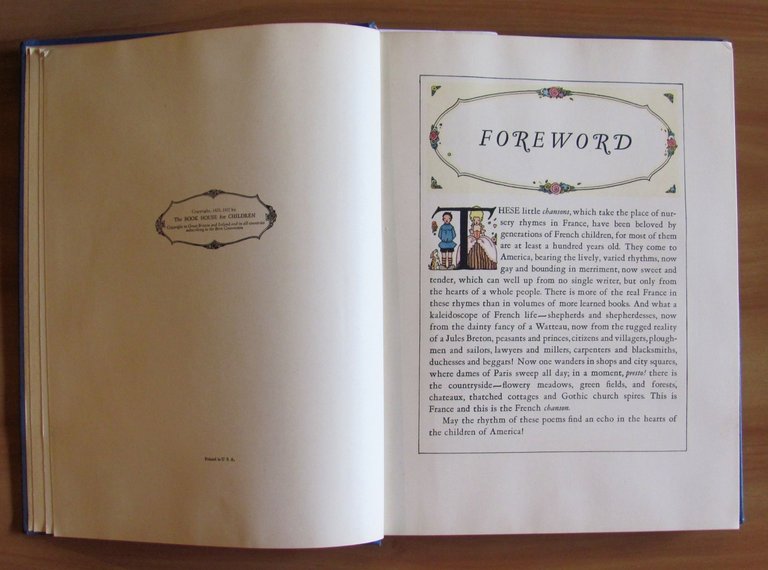 Copyright, 1927, 1937 by
The BOOK HOUSE for CHILDREN
Copyright in Great Britain and Ireland and in all countries
subscribing to the Bern Convention
Printed in U. S. A.
FOREWORD
THESE little chansons, which take the place of nur-
sery rhymes in France, have been beloved by
generations of French children, for most of them
are at least a hundred years old. They come to
America, bearing the lively, varied rhythms, now
gay and bounding in merriment, now sweet and
tender, which can well up from no single writer, but only from
the hearts of a whole people. There is more of the real France in
these rhymes than in volumes of more learned books. And what a
kaleidoscope of French life—shepherds and shepherdesses, now
from the dainty fancy of a Watteau, now from the rugged reality
of a Jules Breton, peasants and princes, citizens and villagers, plough-
men and sailors, lawyers and millers, carpenters and blacksmiths,
duchesses and beggars! Now one wanders in shops and city squares,
where dames of Paris sweep all day; in a moment, presto! there is
the countryside—flowery meadows, green fields, and forests,
chateaux, thatched cottages and Gothic church spires. This is
France and this is the French chanson.
May the rhythm of these poems find an echo in the hearts of
the children of America!